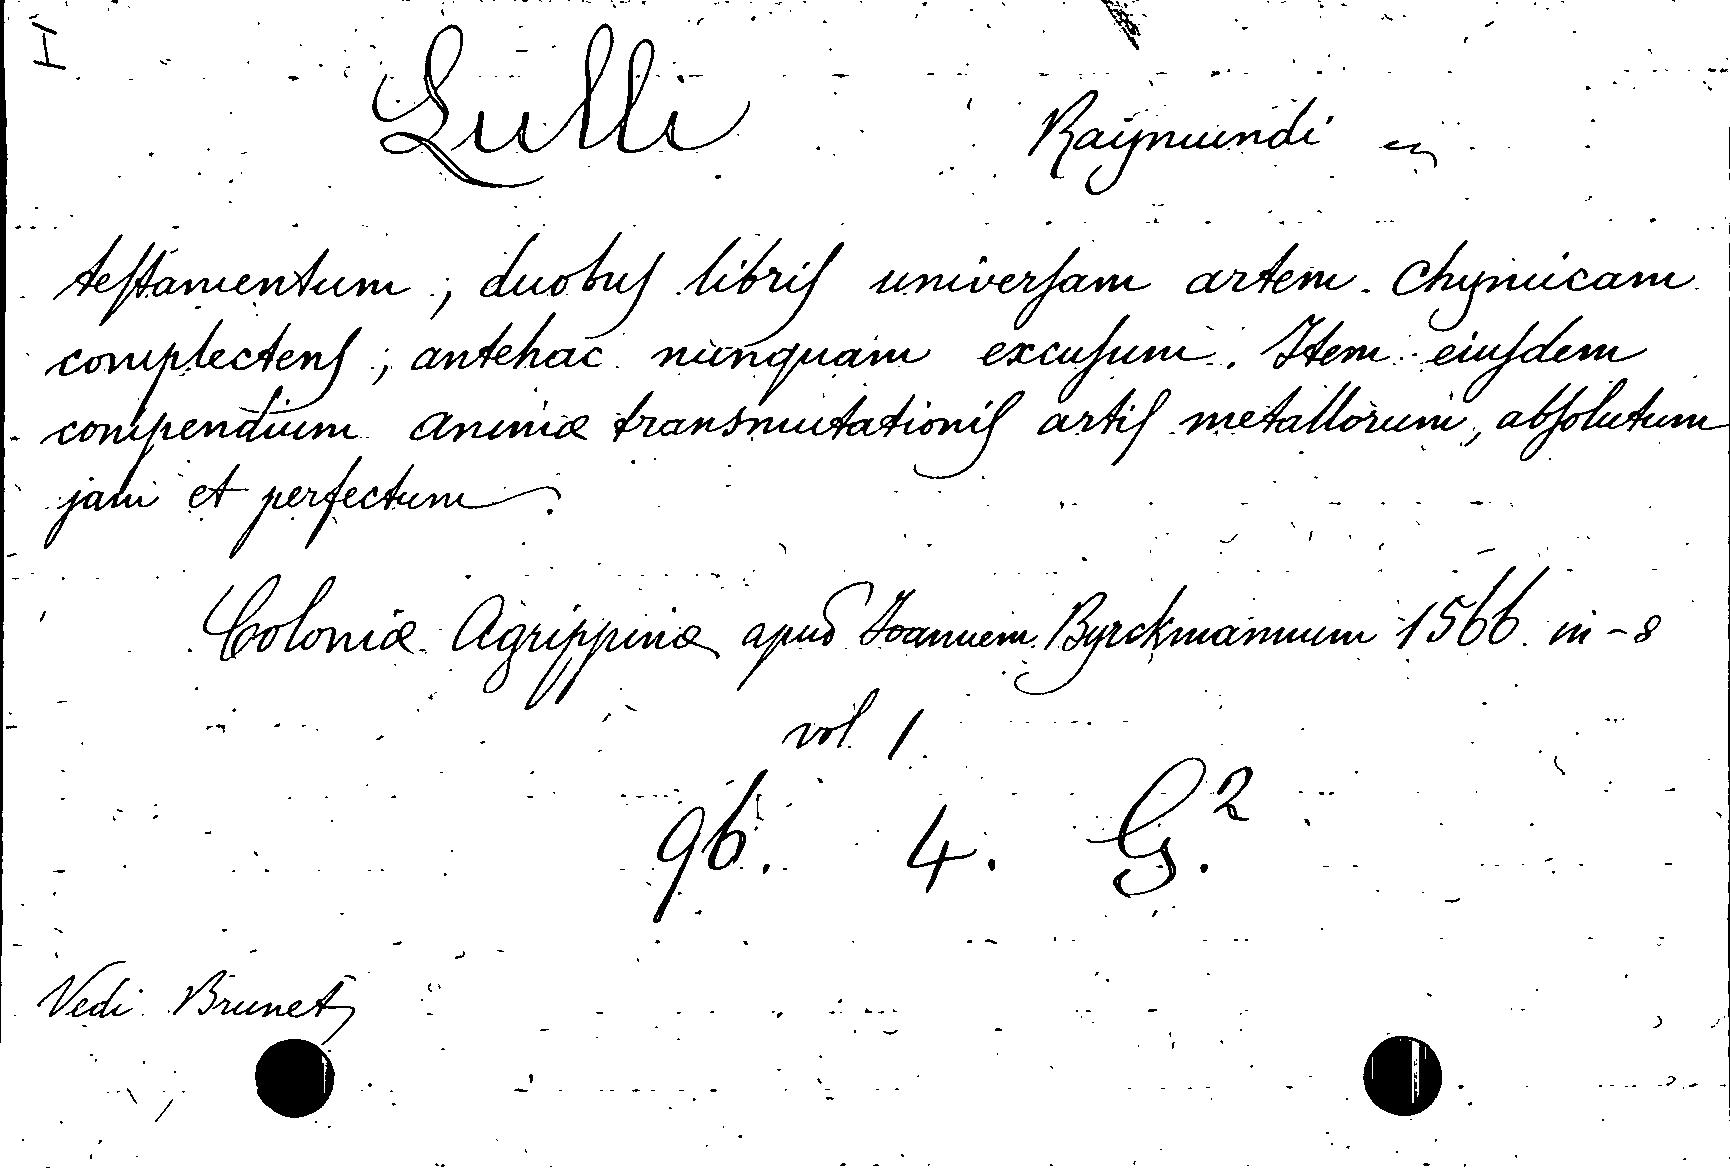 I
Lulli Raymundi
testamentum, duobus libris universam artem chymicam
complectens, antehac nunquam excusum. Item eiusdem
compendium animæ transmutationis artis metallorum, absolutum
jam et perfectum.
Coloniæ Agrippinæ apud Joannem Byrckmannum 1566 in-8
vol. 1
96. 4. G.2
Vedi Brunet